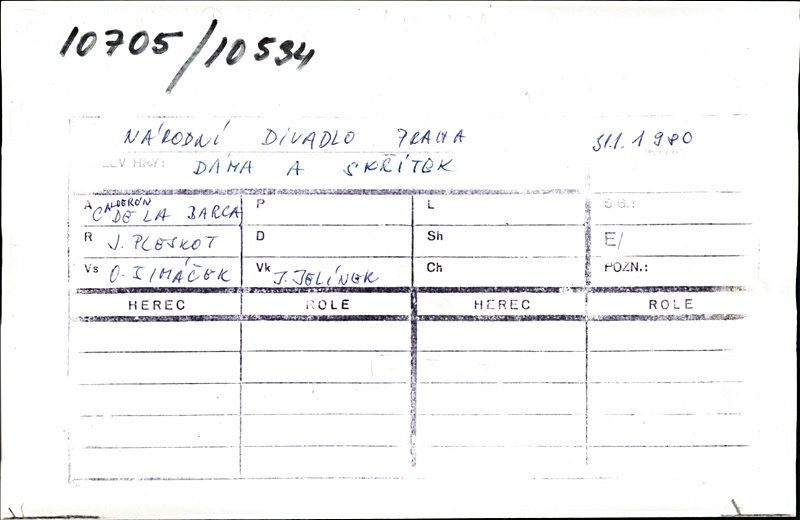 10705/10534
NÁRODNÍ DIVADLO PRAHA 31.1.1980
HRY: DÁMA A SKŘÍTEK
A CALDERÓN DE LA BARCA P L S.G.:
R J. PLESKOT D Sh E/
Vs O. ŠIMÁČEK Vk J. JELÍNEK Ch POZN.:
HEREC ROLE HEREC ROLE